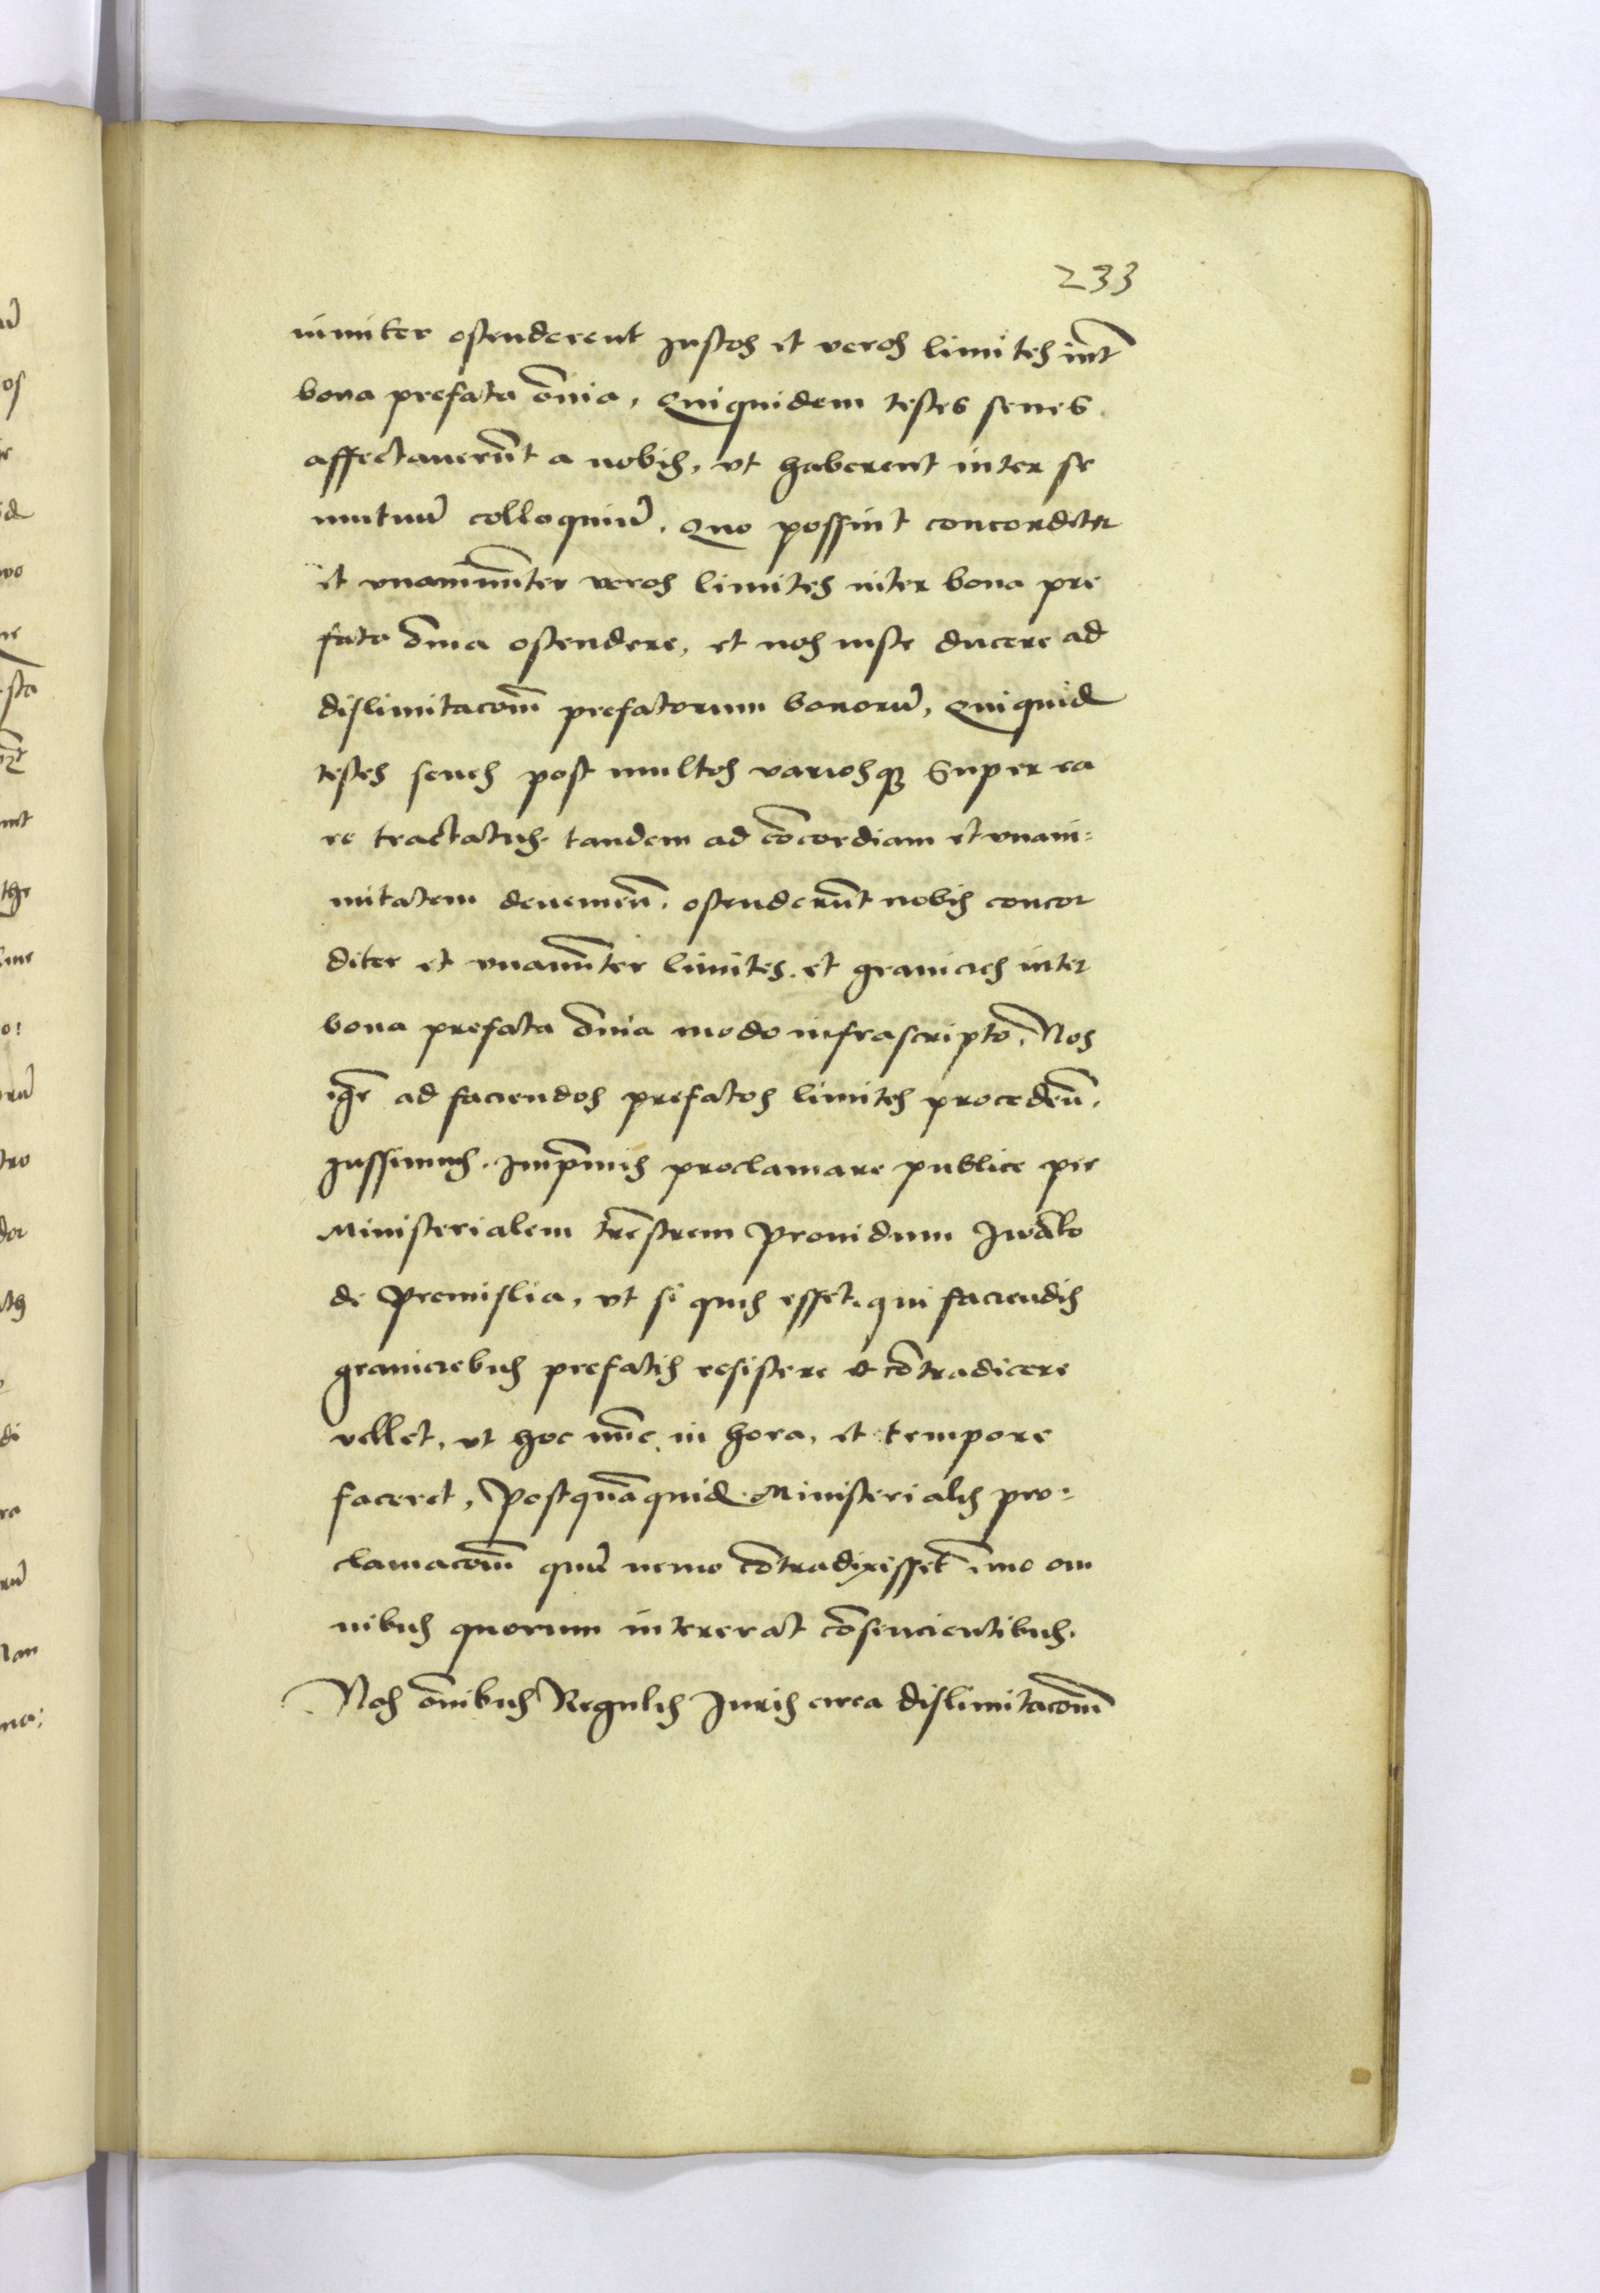 233
nimiter ostenderent justos et veros limites int̄
bona prefata om̄ia, Quiquidem testes senes
affectaverūt a nobis, vt haberent inter se
mutuū colloquiū, Quo possint concorditer
et vnanim̄iter veros limites inter bona pre
fata om̄ia ostendere, et nos iuste ducere ad
dislimitacōm̄ prefatorum bonorū, Quiquid
testes senes post multos variosq̨ super ea
re tractatus tandem ad cōcordiam et vnani=
mitatem deuenien̄. ostenderūt nobis concor
diter et vnanim̄ter limites et granicies inter
bona prefata om̄ia modo infrascripto. Nos
igr̄ ad faciendos prefatos limites proceden̄.
Jussimus. Jmp̄mis proclamare publice per
Ministerialem tr̄estrem Prouidum Jwaͫko
de Premislia, vt si quis esset, qui faciendis
graniciebus prefatis resistere et cōtradicere
vellet, vt hoc nūc in hora, et tempore
faceret, Postquā quid Ministerialis pro=
clamacōm̄ quū nemo cōtradixisset īmo om
nibus quorum intererat cōsencientibus.
Nos om̄ibus Regulis Juris circa dislimitacōm̄